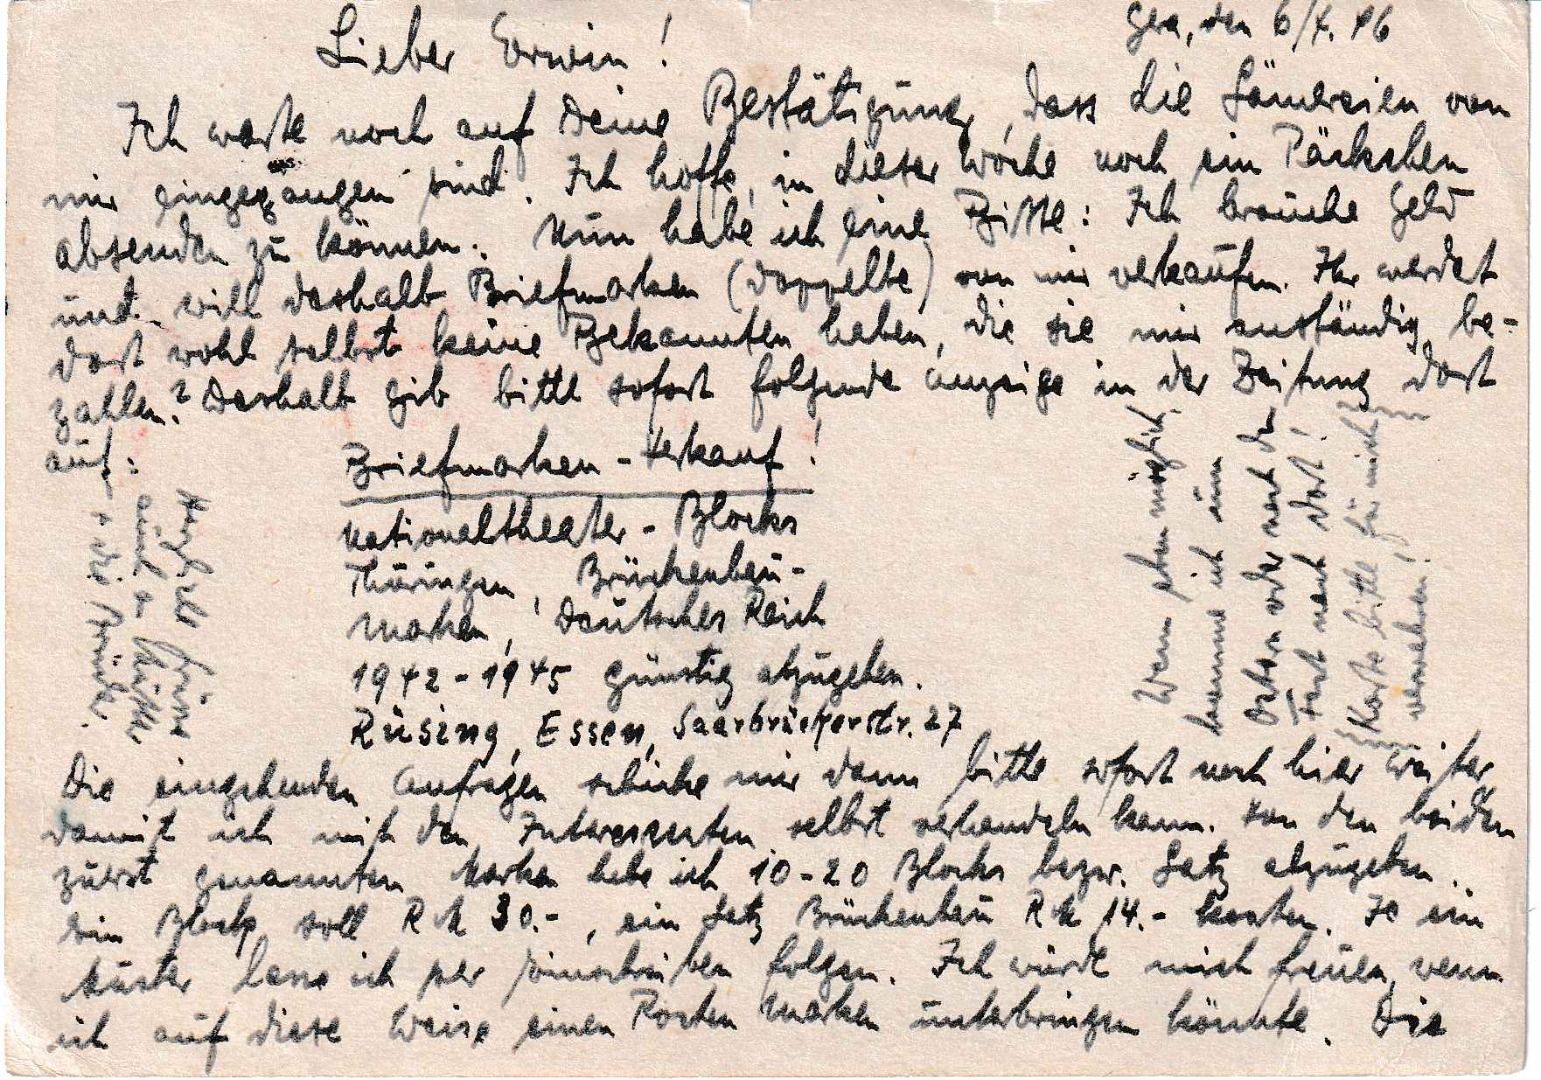 Gera, den 6/4. 46
Lieber Erwin!
Ich warte noch auf Deine Bestätigung, dass die Sämereien von
mir eingegangen sind. Ich hoffe, in dieser Woche noch ein Päckchen
absenden zu können. Nun habe ich eine Bitte: Ich brauche Geld
und will deshalb Briefmarken (doppelte) von mir verkaufen. Ihr werdet
dort wohl selbst keine Bekannten haben, die sie mir anständig be-
zahlen? Deshalb gib bitte sofort folgende Anzeige in der Zeitung dort
auf:
Briefmarken-Verkauf!
Nationaltheater-Blocks
Thüringen, Brückenbau-
marken, Deutsches Reich
1942-1945 günstig abzugeben.
Rüsing, Essen, Saarbrückerstr. 27
Die eingehenden Anfragen schicke mir dann bitte sofort nach hier weiter,
damit ich mit den Interessenten selbst verhandeln kann. Von den beiden
zuerst genannten Marken habe ich 10-20 Blocks bezw. Satz abzugeben.
Ein Block soll RM 30.-, ein Satz Brückenbau RM 14.- kosten. Je ein
Muster lasse ich per Einschreiben folgen. Ich würde mich freuen, wenn
ich auf diese Weise einen Posten Marken unterbringen könnte. Die
Wenn eben möglich
komme ich zum
Ostern oder nach dem
Fest nach dort!
Karte bitte für mich
verwahren!
Herzliche Grüsse
auch an